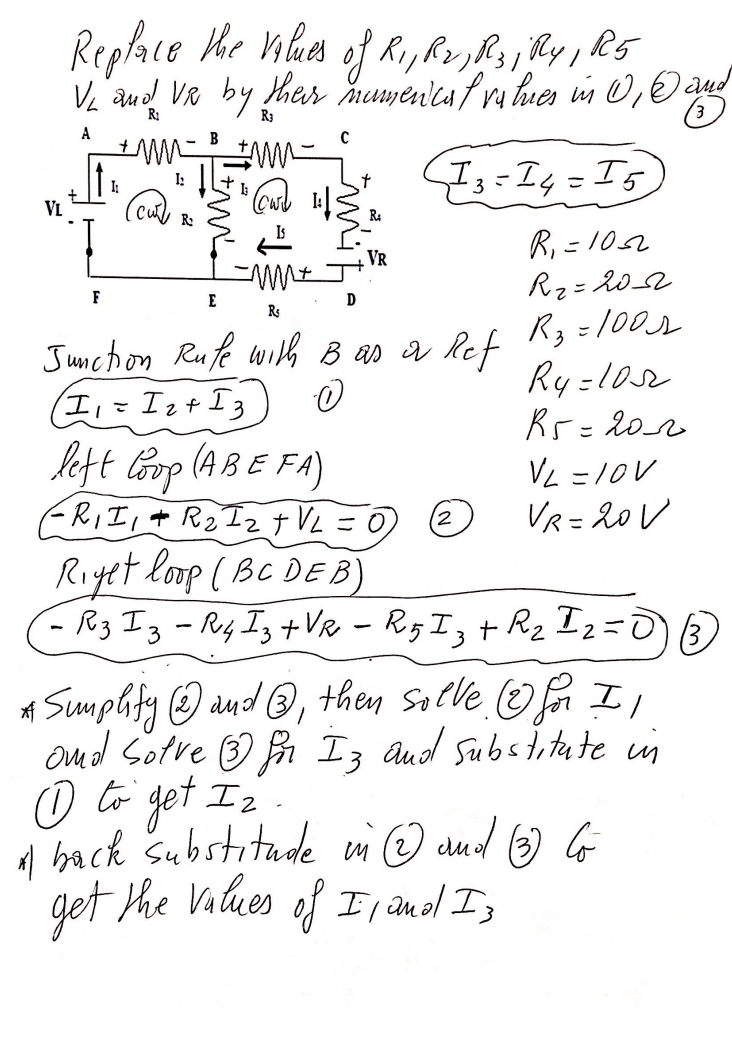 Replace the values of R1, R2, R3, R4, R5
VL and VR by their numerical values in ①, ② and ③
R₁ R₃
A + - B + - C
I₁ I₂ + I₃ +
VL + - CW R₂ CW I₄ R₄
- I₅ - -
+ VR
- +
F E R₅ D
I3 = I4 = I5
R1 = 10Ω
R2 = 20Ω
R3 = 100Ω
R4 = 10Ω
R5 = 20Ω
VL = 10V
VR = 20V
Junction Rule with B as a Ref
I1 = I2 + I3 ①
left loop (ABEFA)
-R1I1 + R2I2 + VL = 0 ②
Riget loop (BCDEB)
- R3 I3 - R4 I3 + VR - R5 I3 + R2 I2 = 0 ③
* Simplify ② and ③, then solve ② for I1
and solve ③ for I3 and substitute in
① to get I2.
* back substitude in ② and ③ to
get the values of I1 and I3